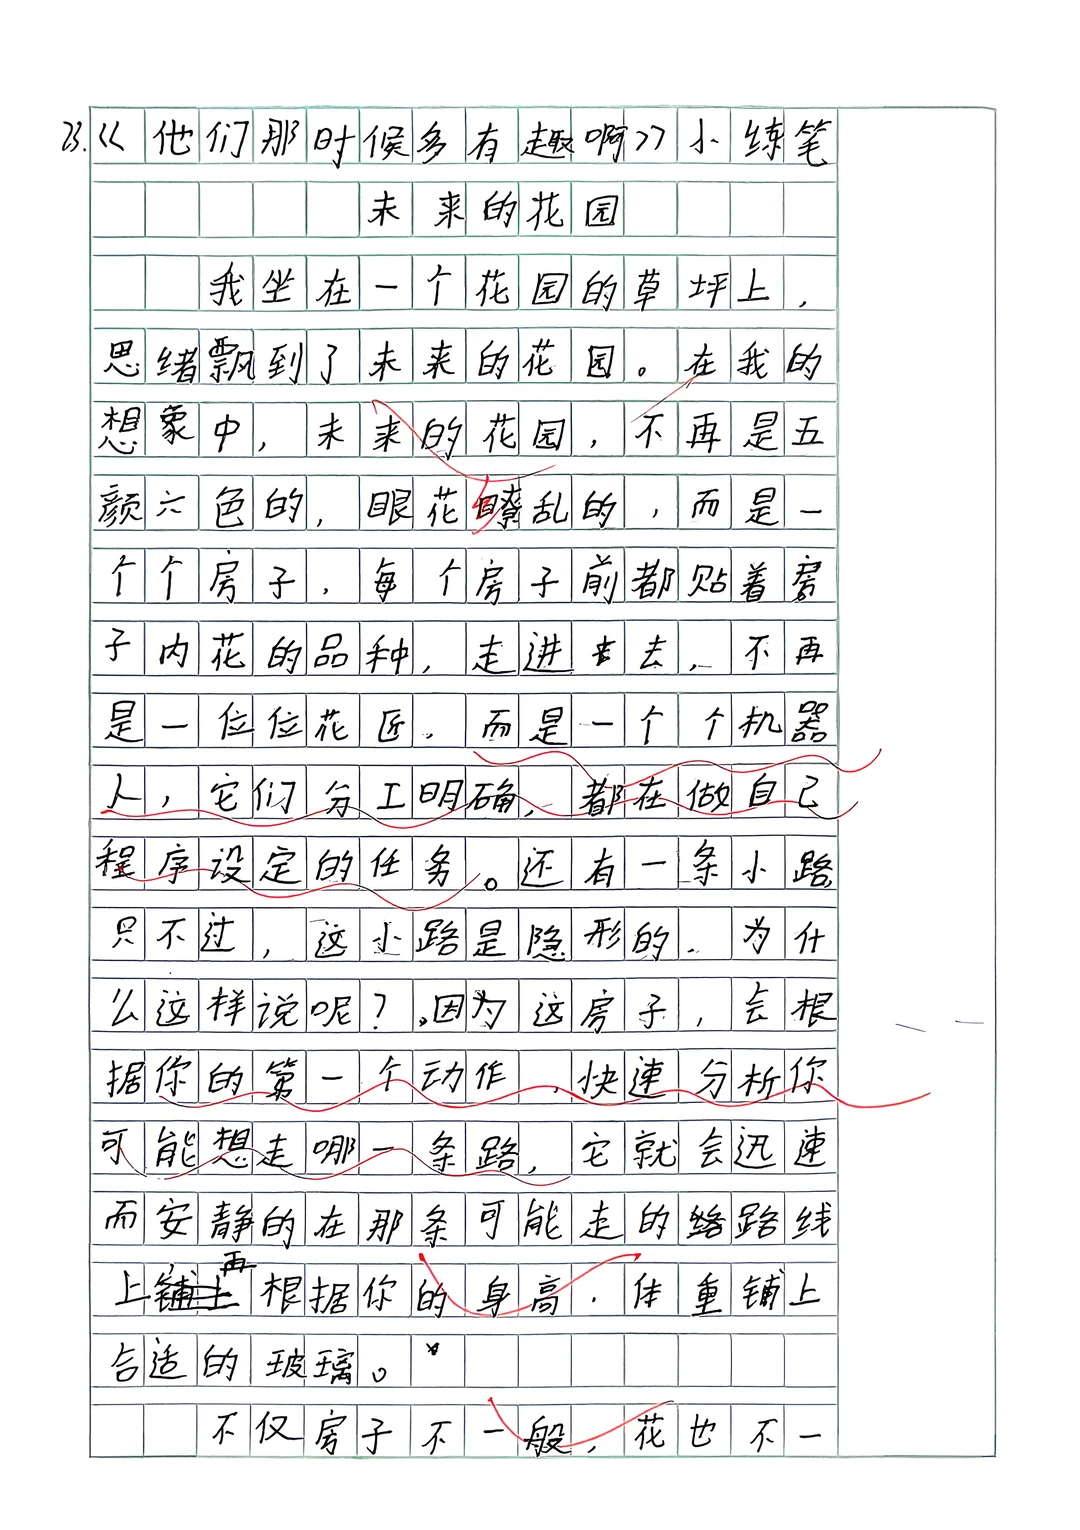 23.《他们那时候多有趣啊》小练笔
未来的花园
我坐在一个花园的草坪上，
思绪飘到了未来的花园。在我的
想象中，未来的花园，不再是五
颜六色的，眼花瞭乱的，而是一
个个房子，每个房子前都贴着房
子内花的品种，走进去，不再
是一位位花匠，而是一个个机器
人，它们分工明确，都在做自己
程序设定的任务。还有一条小路
只不过，这小路是隐形的，为什
么这样说呢？因为这房子，会根
据你的第一个动作，快速分析你
可能想走哪一条路，它就会迅速
而安静的在那条可能走的路线
上再根据你的身高，体重铺上
合适的玻璃。
不仅房子不一般，花也不一